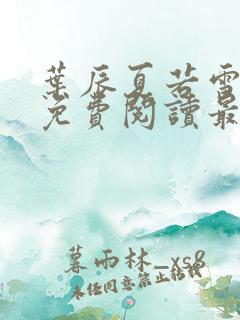 葉辰夏若雪
免費閱讀最
暮雨林_xs8
未经同意禁止转载